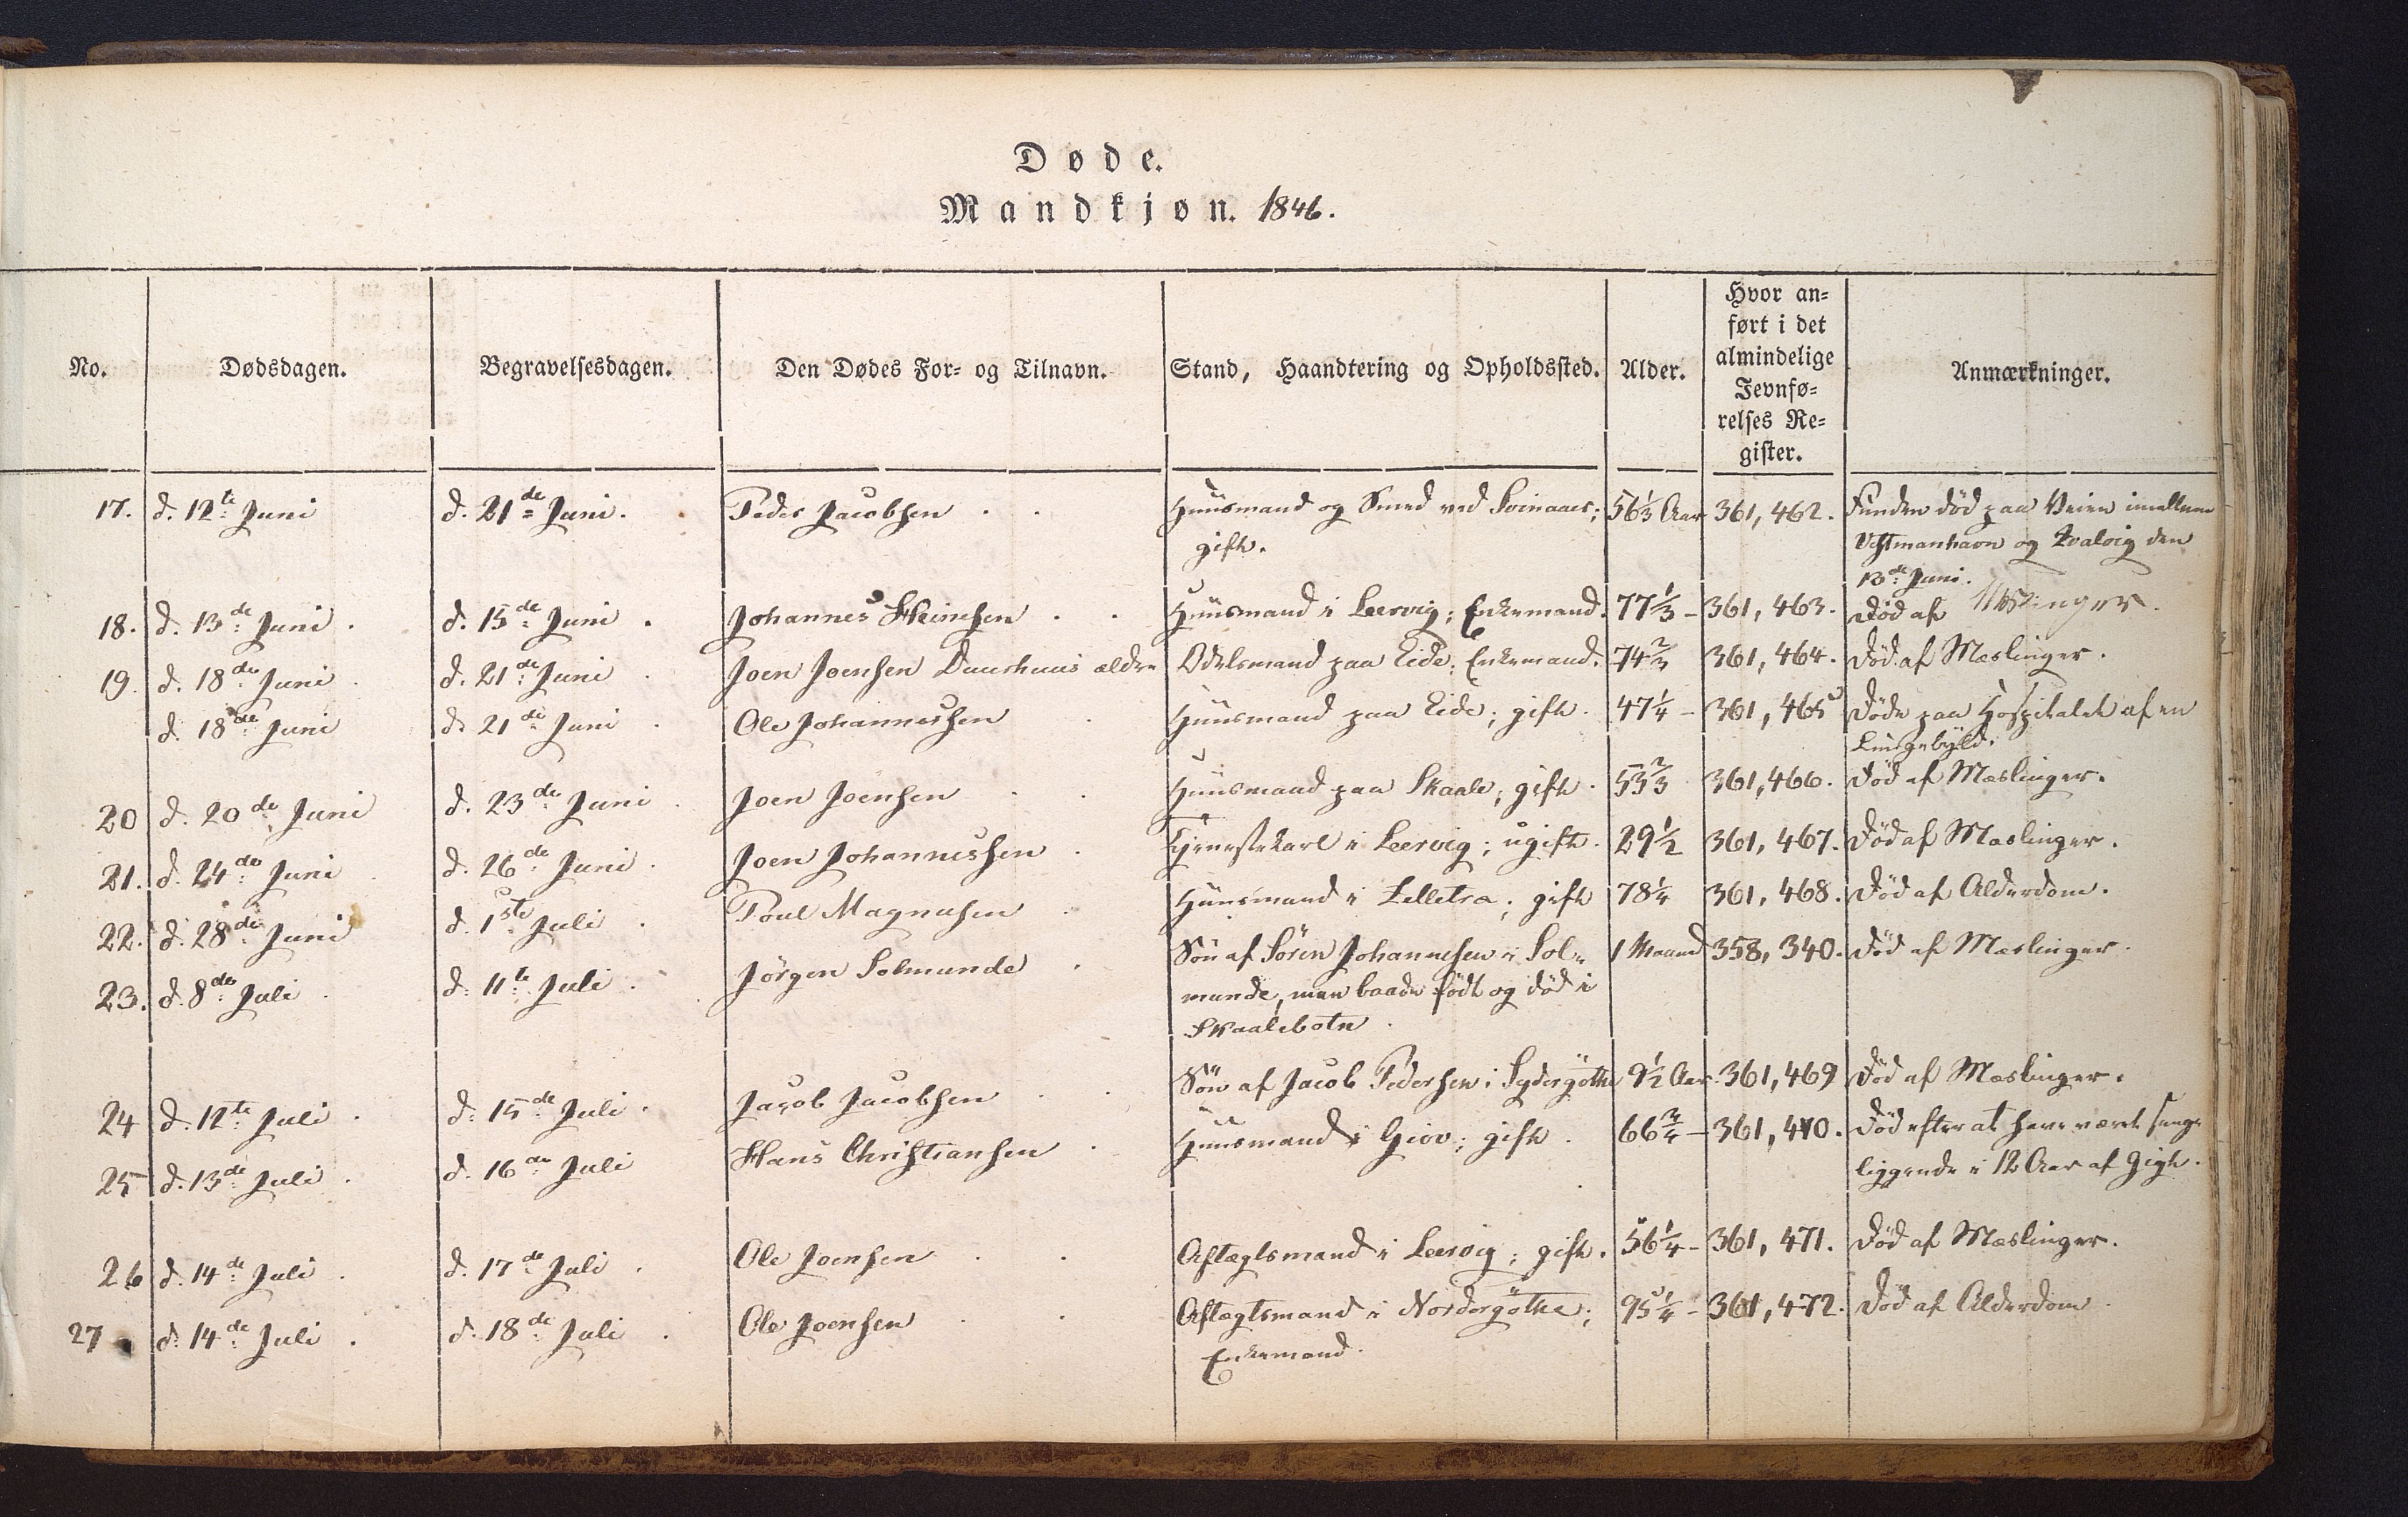 Døde.
Mandkjøn. 1846.
No. Dødsdagen. Begravelsesdagen. Den Dødes For- og Tilnavn. Stand, Haandtering og Opholdssted. Alder. Hvor an=
ført i det
almindelige
Jevnfø=
relses Re=
gister. Anmærkninger.
17. d. 12te Juni d. 21de Juni. Peder Jacobsen Huusmand og Smed ved Svinaaer; 56 1/3 Aar 361, 462. Funden död paa Veien imellem
gift. Vestmanhavn og Qvalvig den
13de Juni.
18. d. 13de Juni. d. 15de Juni. Johannes Heinesen Huusmand i Leervig; Enkemand. 77 1/3 - 361, 463. Död af Mæslinger.
19. d. 18de Juni. d. 21de Juni. Joen Joensen Duurhuus ældre Odelsmand paa Eide; Enkemand. 74 2/3 361, 464. Död af Mæslinger.
d. 18de Juni d. 21de Juni. Ole Johannessen Huusmand paa Eide; gift. 47 1/4 - 361, 465 Döde paa Hospitalet af en
Lungebyld.
20 d. 20de Juni d. 23de Juni. Joen Joensen Huusmand paa Skaale; gift. 53 2/3 361, 466. Död af Mæslinger.
21. d. 24de Juni d. 26de Juni. Joen Johannessen Tjenestekarl i Leervig; ugift. 29 1/2 361, 467. Död af Mæslinger.
22. d. 28de Juni d. 1ste Juli. Poul Magnusen Huusmand i Selletra; gift 78 1/4 361, 468. Död af Alderdom.
23. d. 8de Juli d. 11te Juli. Jörgen Solmunde Sön af Sören Johannesen i Sol= 1 Maaned 358, 340. Död af Mæslinger.
munde, men baade födt og död i
Skaalebotn.
24 d. 12te Juli. d. 15de Juli. Jacob Jacobsen Sön af Jacob Pedersen i Sydergöthe 9 1/2 Aar. 361, 469 Död af Mæslinger.
25 d. 13de Juli. d. 16de Juli Hans Christiansen Huusmand i Giov; gift. 66 3/4 - 361, 470. Död efter at have været senge
liggende i 12 Aar af Gigt.
26 d. 14de Juli. d. 17de Juli. Ole Joensen Aftægtsmand i Leervig; gift. 56 1/4 - 361, 471. Död af Mæslinger.
27 d. 14de Juli. d. 18de Juli. Ole Joensen Aftægtsmand i Nordergöthe; 95 1/4 - 361, 472. Död af Alderdom
Enkemand.